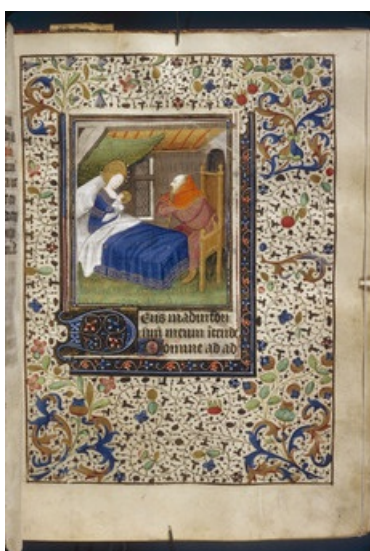 Deus in adiutori
um meum ītende
Domine ad ad